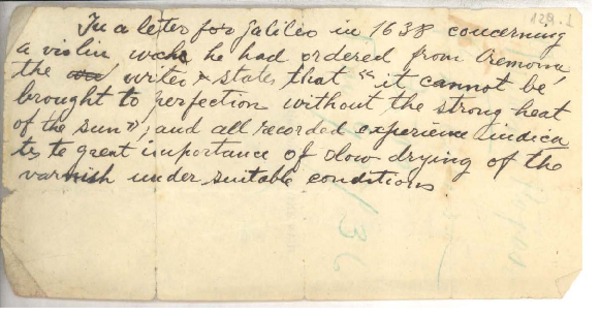 129.I
In a letter for Galileo in 1638 concerning
a violin wche he had ordered from Cremona,
the writer states that "it cannot be
brought to perfection without the strong heat
of the sun"; and all recorded experience indica
ts te great importance of slow drying of the
varnish under suitable conditions
136